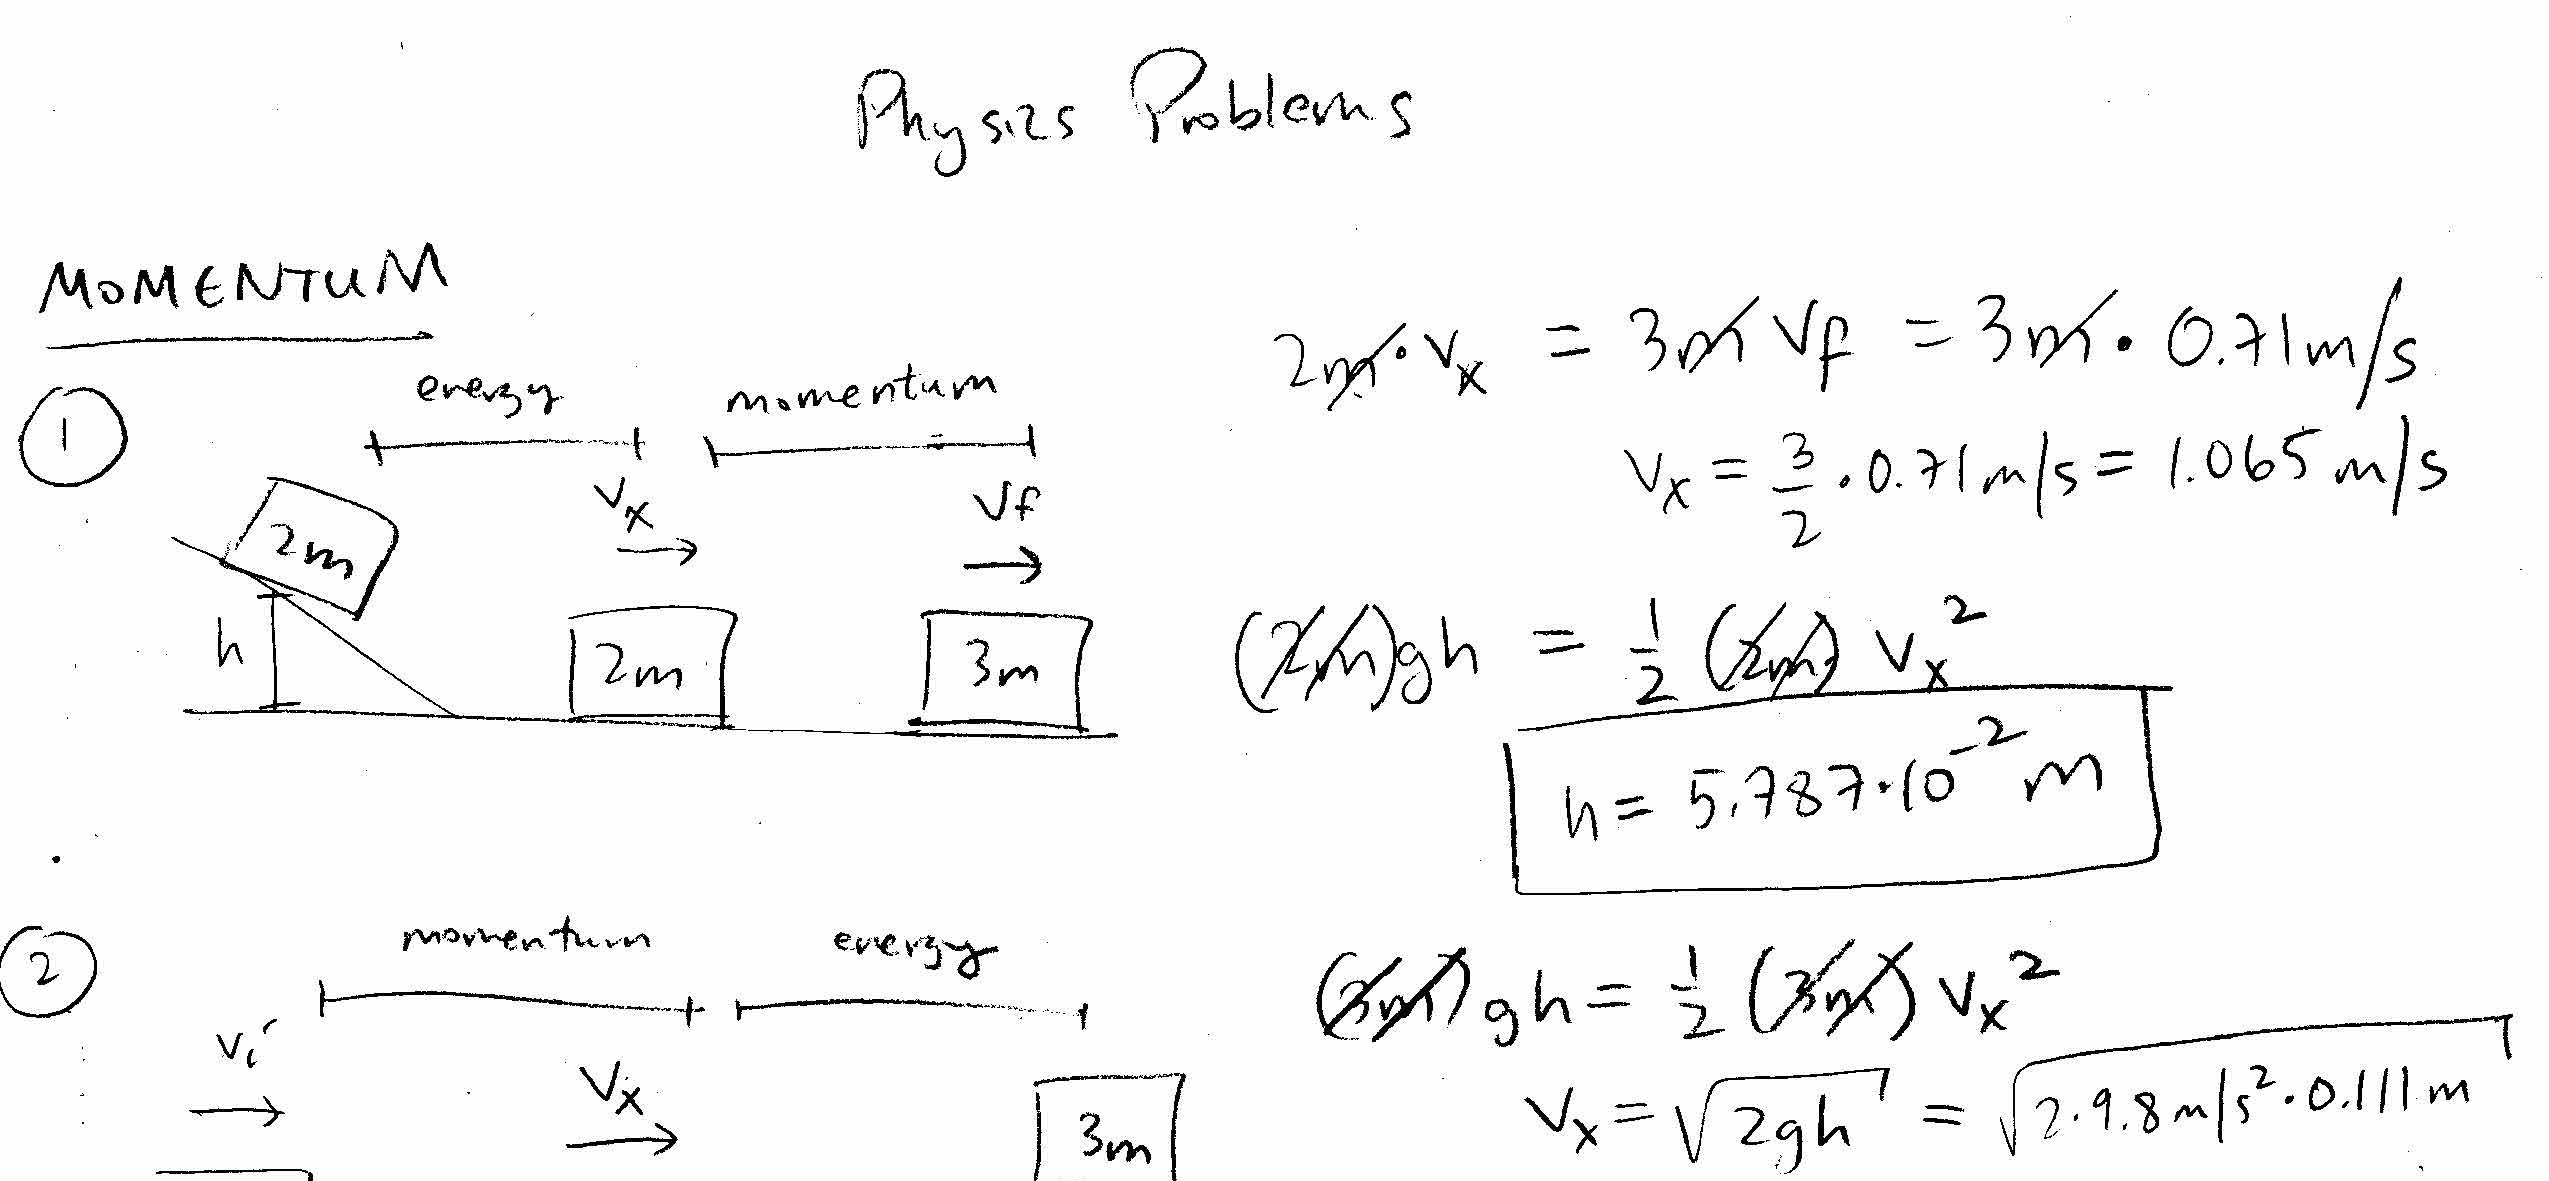 Physics Problems
MOMENTUM
1
energy
momentum
Vx
Vf
2m
h
2m
3m
2m · Vx = 3m Vf = 3m · 0.71 m/s
Vx = 3/2 · 0.71 m/s = 1.065 m/s
(2m)gh = 1/2 (2m) Vx²
h = 5.787·10⁻² m
2
momentum
energy
Vi
Vx
3m
(3m)gh = 1/2 (3m) Vx²
Vx = √2gh = √2·9.8 m/s²·0.111 m